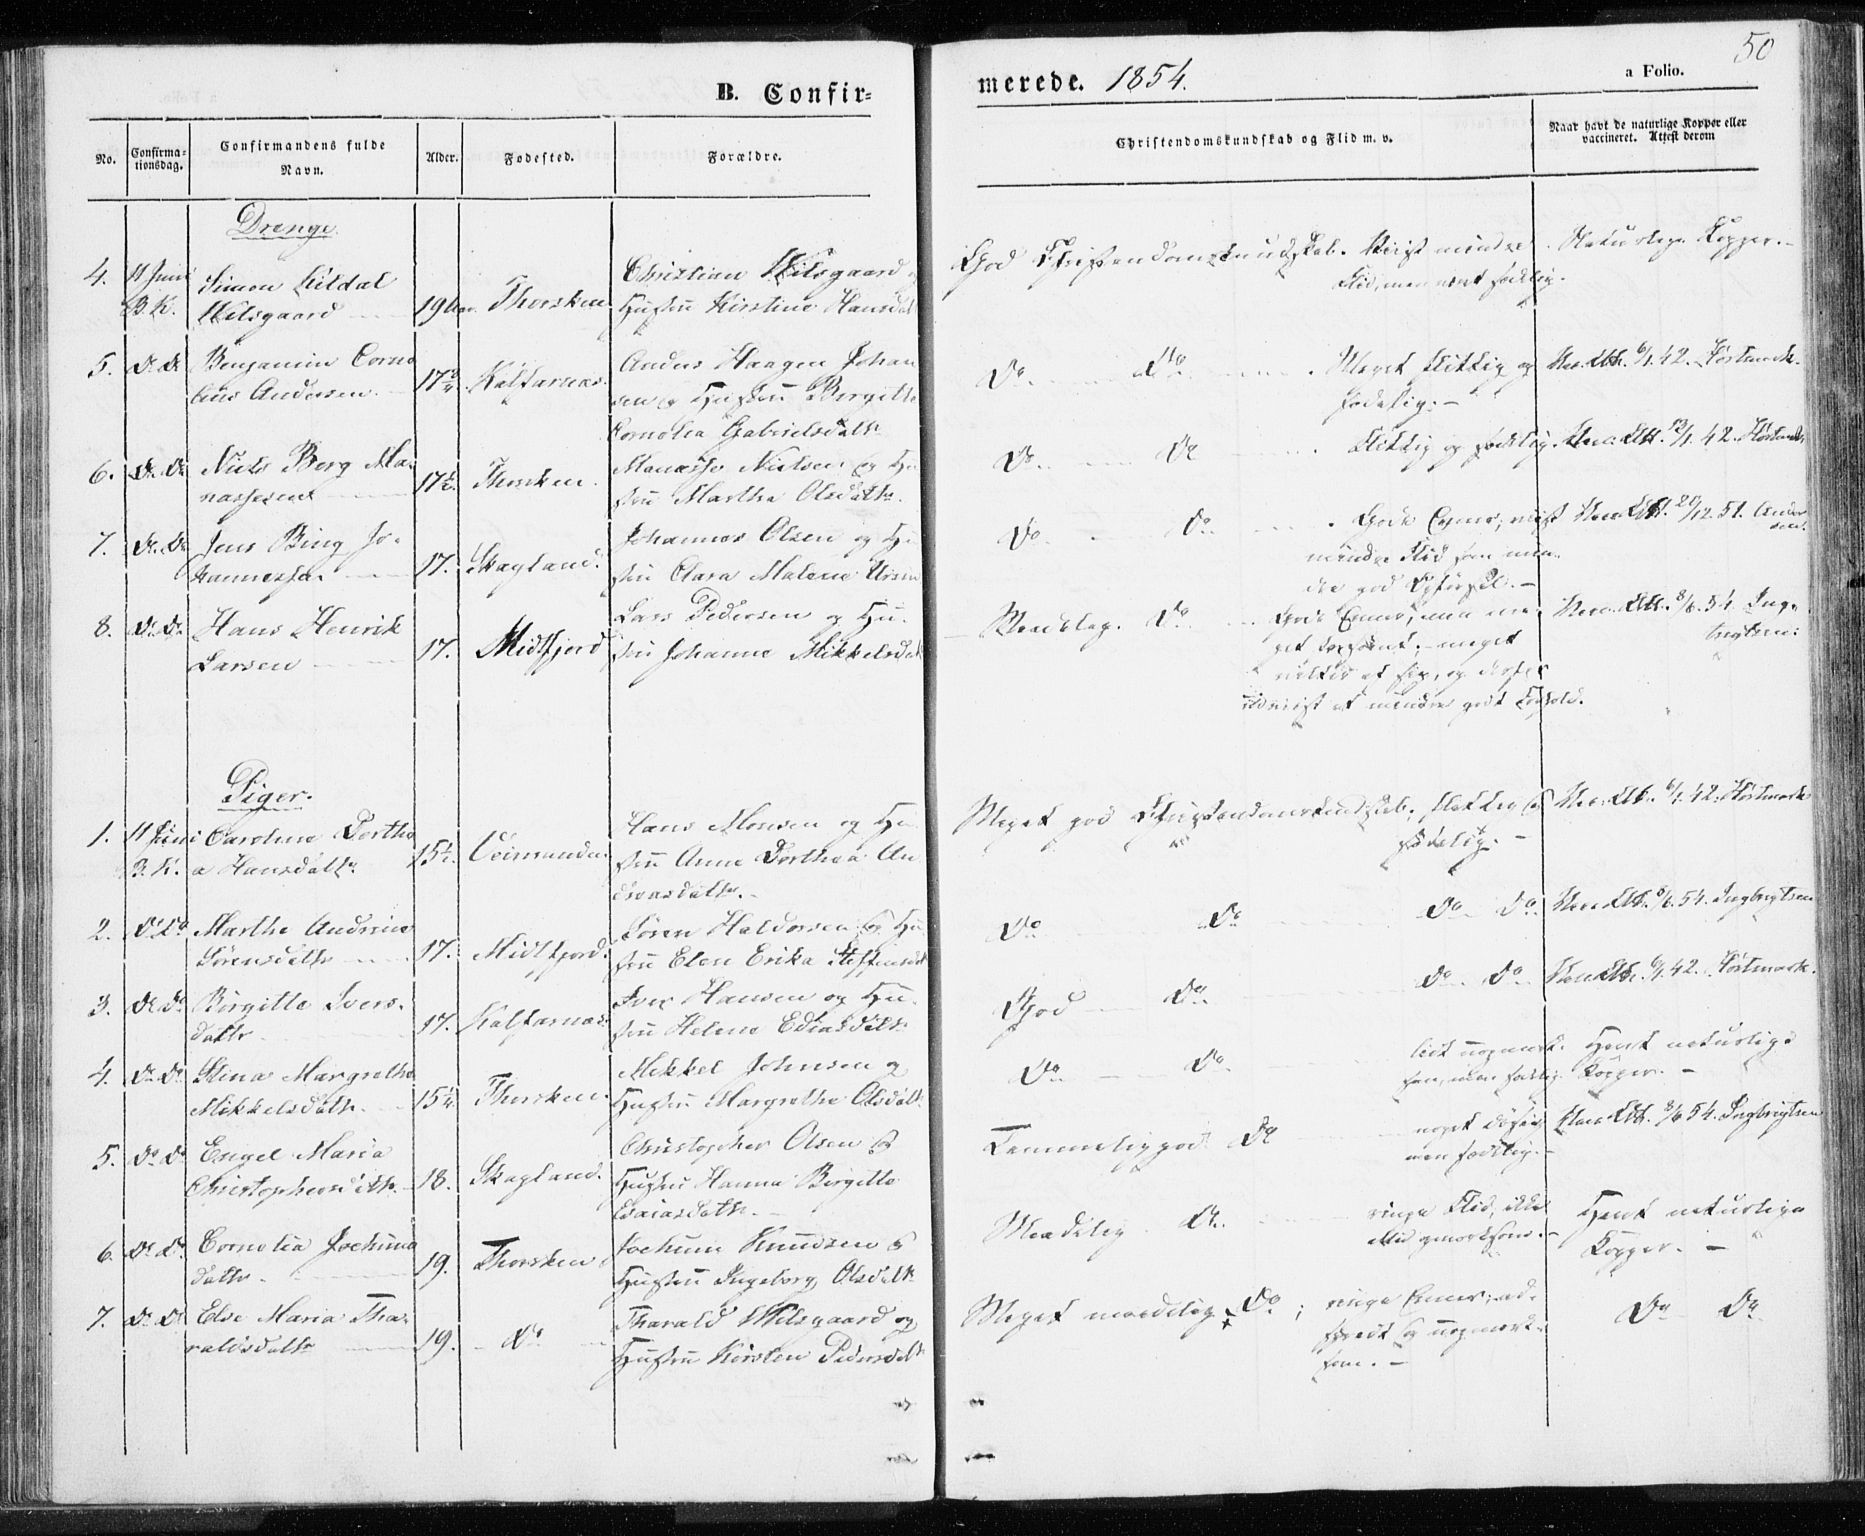 50
B. Confir=
merede. 1854.
a Folio.
No.
Confirma-
tionsdag.
Confirmandens fulde
Navn.
Alder.
Fødested.
Forældre.
Christendomskundskab og Flid m. v.
Naar havt de naturlige Kopper eller
vaccineret. Attest derom
Drenge.
4. 11 Juni
B. K.
Simon Kildal
Wilsgaard
19
Thorsken
Christian Wilsgaard
Hustru Kirstine Hansd
God Christendomskundskab.
mindre
Flid, men
Naturlige Kopper.
5. Do Do
Benjamin Corne
lius Andersen.
17 3/4
Kalfarnæs
Anders Haagen Johan
sen og Hustru Birgitte
Cornelia Gabrielsdatt
Do. Do
Meget flittig og
sædelig.
Vac. Att. 6/1. 42. Høstmark.
6. Do Do
Niels Berg Ma-
nassesen
17 1/2.
Thorsken.
Manasse Nielsen og Hu
stru Marthe Olsdattr.
Do. Do
flittig og sædelig.
Vac. Att. 42.
7. Do. Do
Jens Bing Jo-
hannessen
17.
Skagland.
Johannes Olsen og Hu
stru Clara Malene
Do. Do.
Gode Evner,
mindre Flid
god
Vac. Att. 12. 51. Ander
sen.
8. Do. Do.
Hans Henrik
Larsen
17.
Midtfjord
Lars Pedersen og Hu-
stru Johanne Mikkelsd
Maadelig. Do.
Gode Evner, men me-
get
meget
og
mindre godt Forhold.
Vac. Att. 8/6. 54. Inge
brigtsen.
Piger.
1. 11 Juni
B. K.
Caroline Dorthe
a Hansdattr
15 1/2.
Hans Monsen og Hu
stru Anne Dorthea An
dreasdattr.
Meget god Christendomskundskab; flittig og
sædelig.
Vac. Att. 6/1. 42. Høstmark
2. Do Do
Marthe Andrine
Sørensdattr
17.
Midtfjord.
Søren Haldorsen og Hu
stru Elen Erika Steffensd
Do Do
Do Do.
Vac. Att. 8/6. 54. Ingbrigtsen
3. Do Do
Birgitte Ivers-
dattr
17.
Kalfarnæs
Iver Hansen og Hu-
stru Helene Ediasdattr
God Do.
Do. Do.
Vac. Att. 6/1. 42. Høstmark.
4. Do Do
Stina Margrethe
Mikkelsdattr.
15 1/4
Thorsken.
Mikkel Johnsen og
Hustru Margrethe Olsdatt
Do. Do.
lidt uopmærk-
som, men sædelig.
Havt naturlige
Kopper.
5. Do Do
Engel Maria
Christophersdattr.
18.
Skagland.
Christopher Olsen og
Hustru Hanna Birgitte
Esaiasdattr.
Temmelig god Do
noget
men sædelig.
Vac. Att. 8/6 54. Ingbrigtsen
6. Do Do
Cornelia Jochims
dattr.
19.
Thorsken
Jochum Knudsen og
Hustru Ingeborg Olsdatt
Maadelig Do.
ringe Flid, ikke
Havt naturlige
Kopper.
7. Do Do
Else Maria Tha-
raldsdattr
19.
Do
Tharald Wilsgaard og
Hustru Kirsten Pedersdatt
Meget maadelig Do;
ringe Evner; ad-
spredt og uopmærk-
som.
Do Do.